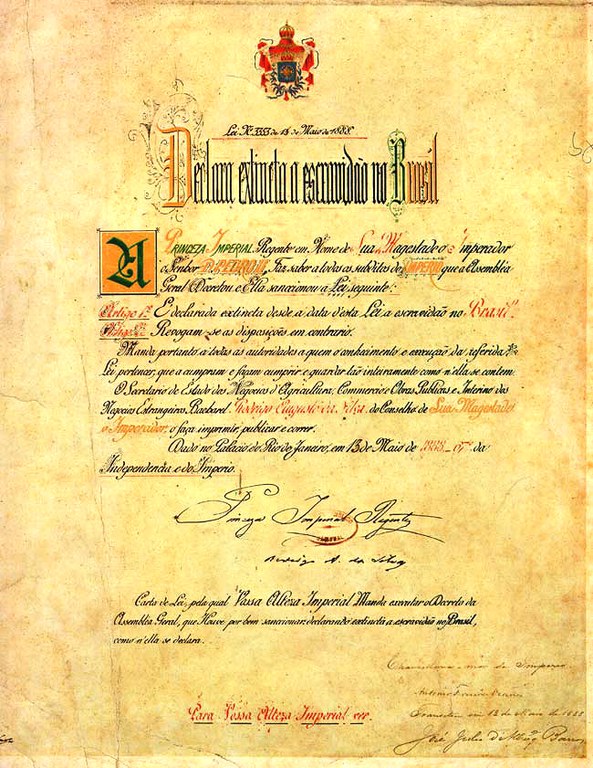 Lei Nº 3353 de 13 de Maio de 1888.
Declara extincta a escravidão no Brasil
A PRINCEZA IMPERIAL, Regente em Nome de Sua Magestade o Imperador
o Senhor D. PEDRO II, Faz saber a todos os subditos do IMPERIO que a Assembléa
Geral Decretou e Ella sanccionou a Lei seguinte:
Artigo 1º É declarada extincta desde a data d'esta Lei a escravidão no Brasil.
Artigo 2º Revogam-se as disposições em contrario.
Manda portanto a todas as autoridades a quem o conhecimento e execução da referida
Lei pertencer, que a cumpram e façam cumprir e guardar tão inteiramente como n'ella se contem.
O Secretario de Estado dos Negocios d'Agricultura, Commercio e Obras Publicas e Interino dos
Negocios Estrangeiros, Bacharel Rodrigo Augusto da Silva, do Conselho de Sua Magestade
o Imperador, o faça imprimir, publicar e correr.
Dado no Palacio do Rio de Janeiro, em 13 de Maio de 1888 - 67º da
Independencia e do Imperio.
Princeza Imperial Regente
Rodrigo A. da Silva
Carta de Lei, pela qual Vossa Alteza Imperial Manda executar o Decreto da
Assembléa Geral, que Houve por bem sanccionar, declarando extincta a escravidão no Brasil,
como n'ella se declara.
Para Vossa Alteza Imperial ver.
Chancellaria-mór do Imperio
Transitou em 13 de Maio de 1888
José Julio d'Albuq Barros